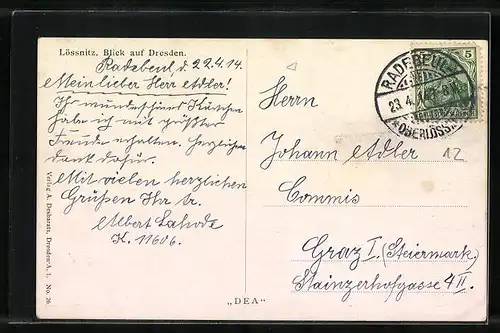 Lössnitz. Blick auf Dresden.
Radebeul, d. 22.4.14.
Mein lieber Herr Adler!
Ihr wunderschönes Kärtchen
habe ich mit größter
Freude erhalten. Herzlichen
Dank dafür.
Mit vielen herzlichen
Grüßen Ihr
Albert
K. 11606.
Verlag A. Dresden-A. 1. No. 26
„DEA“
RADEBEUL
23.4.
*OBERLÖSSN
5
Herrn
Johann Adler
12
Commis
Graz I. (Steiermark)
Stainzerhofgasse 4 II.